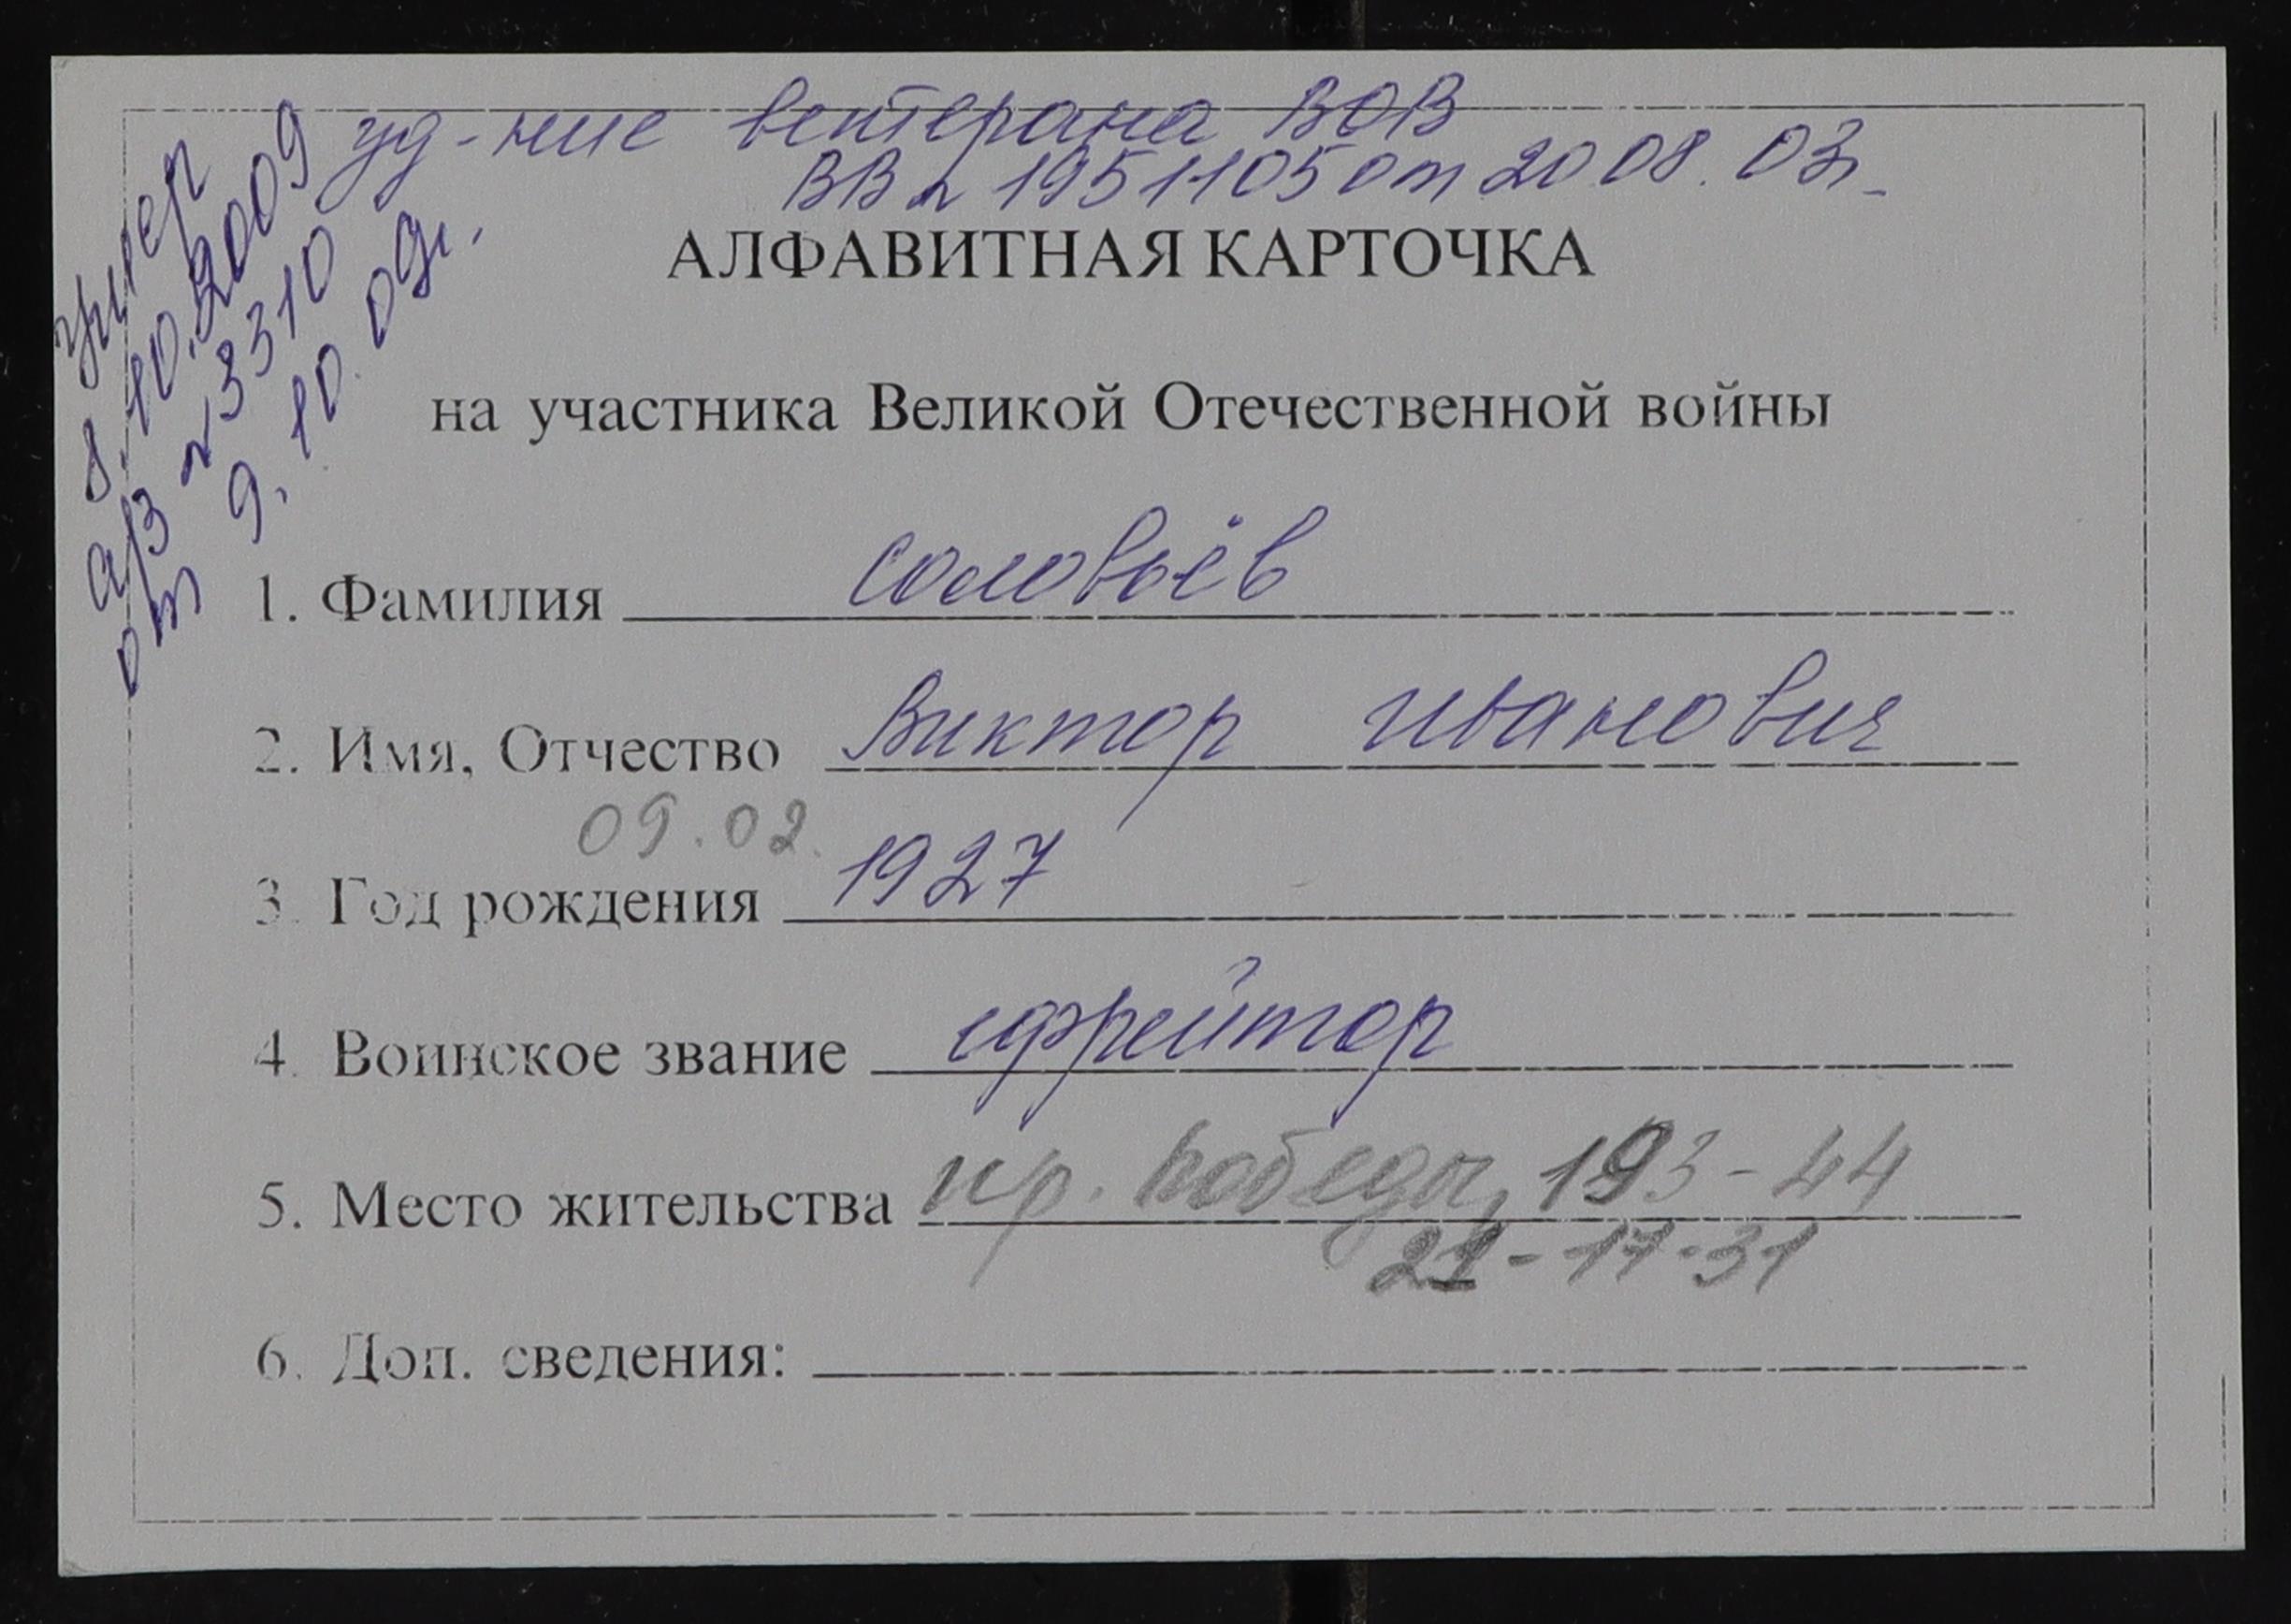 уд-ние ветерана ВОВ
ВВ № 1951105 от 20.08.03г.
умер
8.10.2009
а/з № 3310
от 9.10.09г.
АЛФАВИТНАЯ КАРТОЧКА
на участника Великой Отечественной войны
1. Фамилия Соловьёв
2. Имя, Отчество Виктор Иванович
09.02.
3. Год рождения 1927
4. Воинское звание ефрейтор
5. Место жительства пр. Победы, 193-44
21-17-31
6. Доп. сведения: